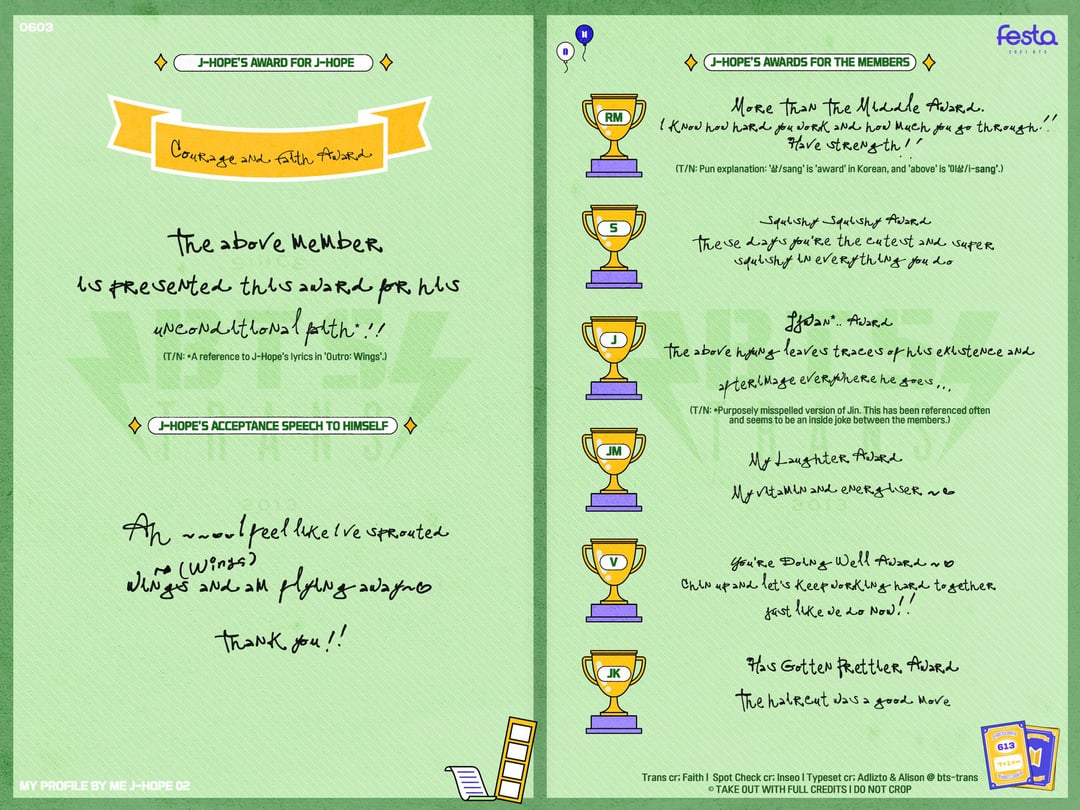 0603
J-HOPE'S AWARD FOR J-HOPE
Courage and Faith Award
The above member
is presented this award for his
unconditional faith*!!
(T/N: *A reference to J-Hope's lyrics in 'Outro: Wings'.)
J-HOPE'S ACCEPTANCE SPEECH TO HIMSELF
Ah ~~~~ I feel like I've sprouted
~(Wings)
wings and am flying away~♡
Thank you!!
MY PROFILE BY ME J-HOPE 02
festa
2021 BTS
J-HOPE'S AWARDS FOR THE MEMBERS
RM
More Than The Middle Award.
I know how hard you work and how much you go through!!
Have strength!!
(T/N: Pun explanation: '상/sang' is 'award' in Korean, and 'above' is '이상/i-sang'.)
S
Squishy Squishy Award
These days you're the cutest and super
squishy in everything you do
J
Award
The above hyung leaves traces of his existence and
afterimage everywhere he goes...
(T/N: *Purposely misspelled version of Jin. This has been referenced often
and seems to be an inside joke between the members.)
JM
My Laughter Award
My vitamin and energiser ~♡
V
You're Doing Well Award ~♡
Chin up and let's keep working hard together
just like we do now!!
JK
Has Gotten Prettier Award
The haircut was a good move
613
Trans cr; Faith | Spot Check cr; Inseo | Typeset cr; Adlizto & Alison @ bts-trans
© TAKE OUT WITH FULL CREDITS | DO NOT CROP
BTS
TRANS
2017
BTS
TRANS
2017